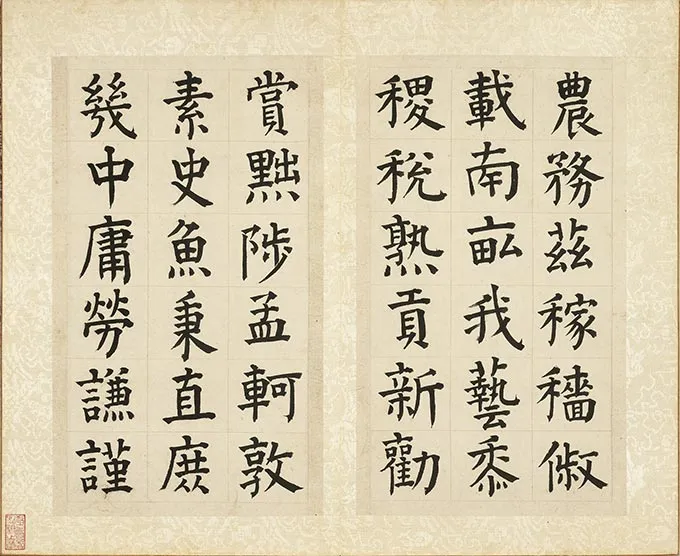 農務茲稼穡俶
載南畝我藝黍
稷稅熟貢新勸
賞黜陟孟軻敦
素史魚秉直庶
幾中庸勞謙謹